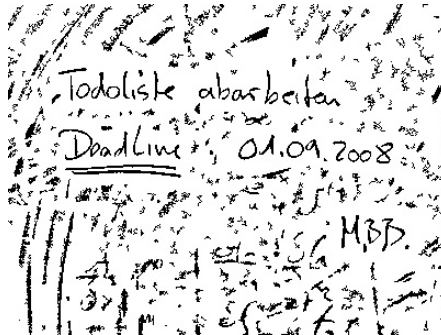 Todoliste abarbeiten
Deadline: 01.09.2008
MBB.